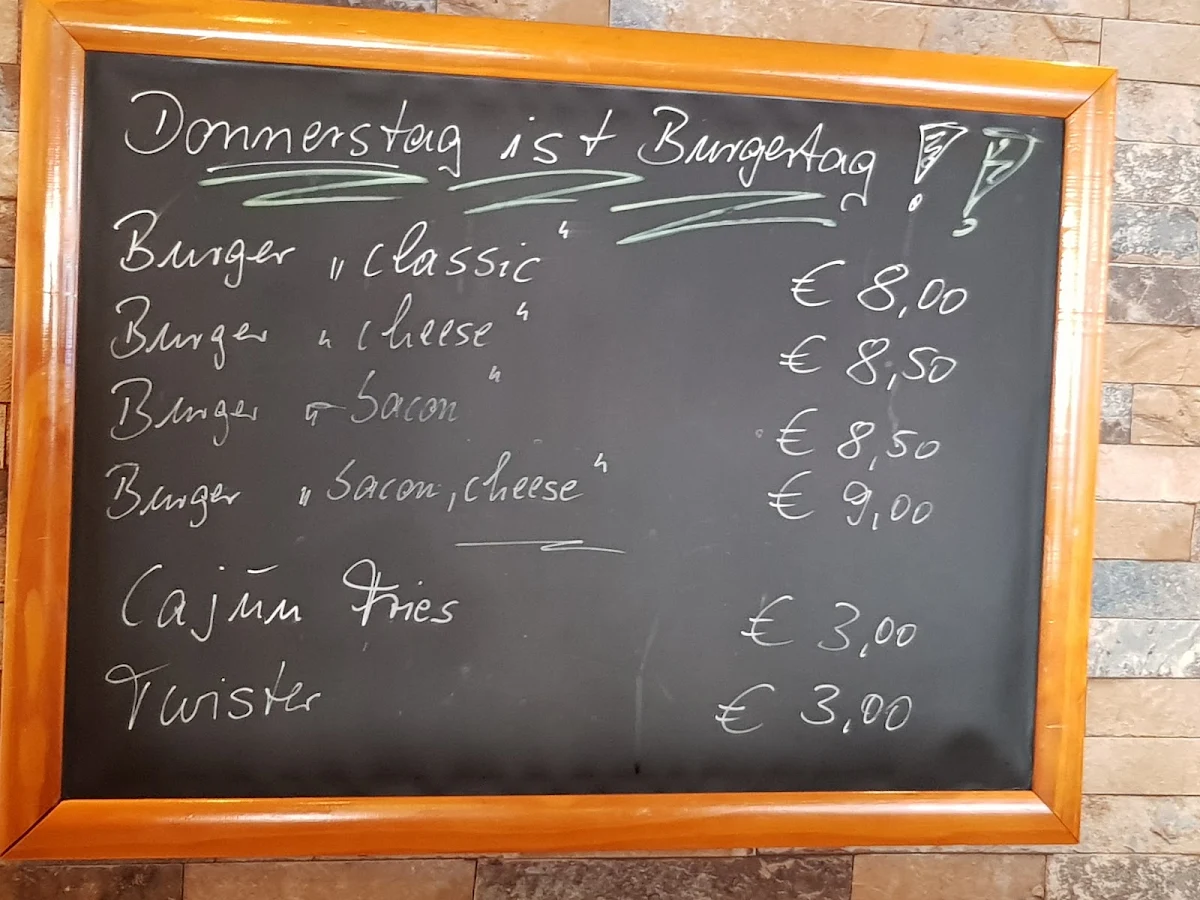 Donnerstag ist Burgertag !!
Burger „classic“ € 8,00
Burger „cheese“ € 8,50
Burger „bacon“ € 8,50
Burger „bacon, cheese“ € 9,00
Cajun Fries € 3,00
Twister € 3,00